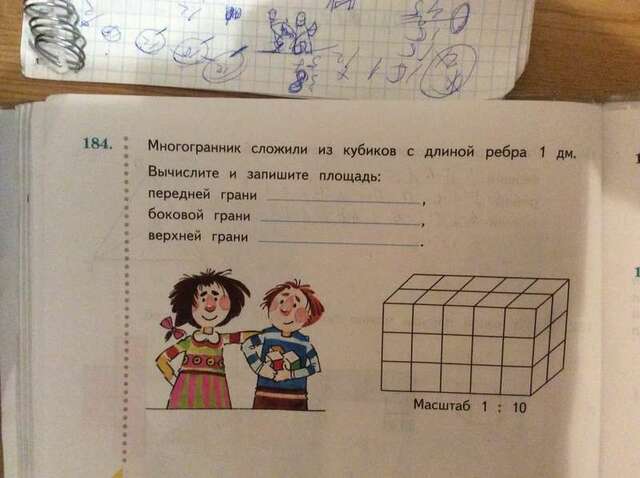 184. Многогранник сложили из кубиков с длиной ребра 1 дм.
Вычислите и запишите площадь:
передней грани ,
боковой грани ,
верхней грани .
Масштаб 1 : 10